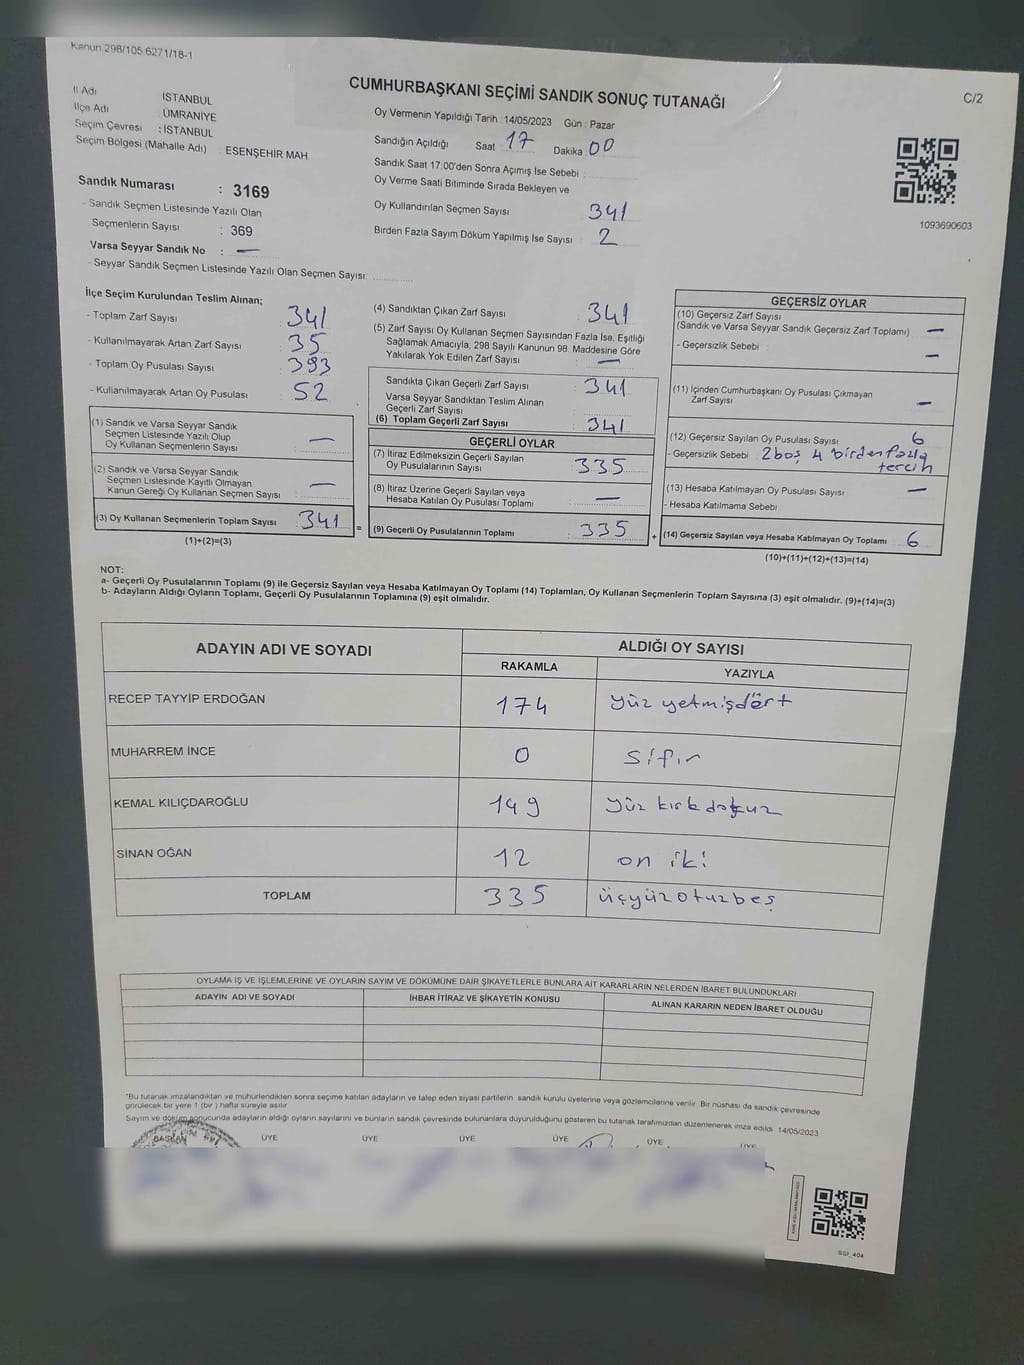 Kanun 298/105 6271/18-1
CUMHURBAŞKANI SEÇİMİ SANDIK SONUÇ TUTANAĞI
C/2
İl Adı İSTANBUL
İlçe Adı ÜMRANİYE
Seçim Çevresi : İSTANBUL
Seçim Bölgesi (Mahalle Adı) : ESENŞEHİR MAH
Sandık Numarası : 3169
- Sandık Seçmen Listesinde Yazılı Olan
Seçmenlerin Sayısı : 369
Varsa Seyyar Sandık No : —
- Seyyar Sandık Seçmen Listesinde Yazılı Olan Seçmen Sayısı
Oy Vermenin Yapıldığı Tarih : 14/05/2023 Gün : Pazar
Sandığın Açıldığı Saat : 17 Dakika : 00
Sandık Saat 17.00'den Sonra Açımış İse Sebebi :
Oy Verme Saati Bitiminde Sırada Bekleyen ve
Oy Kullandırılan Seçmen Sayısı 341
Birden Fazla Sayım Döküm Yapılmış İse Sayısı : 2
1093690603
İlçe Seçim Kurulundan Teslim Alınan;
- Toplam Zarf Sayısı : 341
- Kullanılmayarak Artan Zarf Sayısı : 35
- Toplam Oy Pusulası Sayısı : 393
- Kullanılmayarak Artan Oy Pusulası : 52
(1) Sandık ve Varsa Seyyar Sandık
Seçmen Listesinde Yazılı Olup
Oy Kullanan Seçmenlerin Sayısı : —
(2) Sandık ve Varsa Seyyar Sandık
Seçmen Listesinde Kayıtlı Olmayan
Kanun Gereği Oy Kullanan Seçmen Sayısı : —
(3) Oy Kullanan Seçmenlerin Toplam Sayısı : 341
(1)+(2)=(3)
(4) Sandıktan Çıkan Zarf Sayısı : 341
(5) Zarf Sayısı Oy Kullanan Seçmen Sayısından Fazla İse, Eşitliği
Sağlamak Amacıyla, 298 Sayılı Kanunun 98. Maddesine Göre
Yakılarak Yok Edilen Zarf Sayısı : —
Sandıkta Çıkan Geçerli Zarf Sayısı : 341
Varsa Seyyar Sandıktan Teslim Alınan
Geçerli Zarf Sayısı :
(6) Toplam Geçerli Zarf Sayısı : 341
GEÇERLİ OYLAR
(7) İtiraz Edilmeksizin Geçerli Sayılan
Oy Pusulalarının Sayısı : 335
(8) İtiraz Üzerine Geçerli Sayılan veya
Hesaba Katılan Oy Pusulası Toplamı : —
= (9) Geçerli Oy Pusulalarının Toplamı : 335
GEÇERSİZ OYLAR
(10) Geçersiz Zarf Sayısı
(Sandık ve Varsa Seyyar Sandık Geçersiz Zarf Toplamı) —
- Geçersizlik Sebebi : —
(11) İçinden Cumhurbaşkanı Oy Pusulası Çıkmayan
Zarf Sayısı —
(12) Geçersiz Sayılan Oy Pusulası Sayısı : 6
- Geçersizlik Sebebi : 2 boş 4 birden fazla
tercih
(13) Hesaba Katılmayan Oy Pusulası Sayısı : —
- Hesaba Katılmama Sebebi :
+ (14) Geçersiz Sayılan veya Hesaba Katılmayan Oy Toplamı : 6
(10)+(11)+(12)+(13)=(14)
NOT:
a- Geçerli Oy Pusulalarının Toplamı (9) ile Geçersiz Sayılan veya Hesaba Katılmayan Oy Toplamı (14) Toplamları, Oy Kullanan Seçmenlerin Toplam Sayısına (3) eşit olmalıdır. (9)+(14)=(3)
b- Adayların Aldığı Oyların Toplamı, Geçerli Oy Pusulalarının Toplamına (9) eşit olmalıdır.
ADAYIN ADI VE SOYADI ALDIĞI OY SAYISI
RAKAMLA YAZIYLA
RECEP TAYYİP ERDOĞAN 174 yüz yetmişdört
MUHARREM İNCE 0 sıfır
KEMAL KILIÇDAROĞLU 149 yüz kırk dokuz
SİNAN OĞAN 12 on iki
TOPLAM 335 üçyüzotuzbeş
OYLAMA İŞ VE İŞLEMLERİNE VE OYLARIN SAYIM VE DÖKÜMÜNE DAİR ŞİKAYETLERLE BUNLARA AİT KARARLARIN NELERDEN İBARET BULUNDUKLARI
ADAYIN ADI VE SOYADI İHBAR İTİRAZ VE ŞİKAYETİN KONUSU ALINAN KARARIN NEDEN İBARET OLDUĞU
"Bu tutanak imzalandıktan ve mühürlendikten sonra seçime katılan adayların ve talep eden siyasi partilerin sandık kurulu üyelerine veya gözlemcilerine verilir. Bir nüshası da sandık çevresinde
görülecek bir yere 1 (bir) hafta süreyle asılır
Sayım ve döküm sonucunda adayların aldığı oyların sayılarını ve bunların sandık çevresinde bulunanlara duyurulduğunu gösteren bu tutanak tarafımızdan düzenlenerek imza edildi 14/05/2023
BAŞKAN ÜYE ÜYE ÜYE ÜYE ÜYE ÜYE
SSI_404